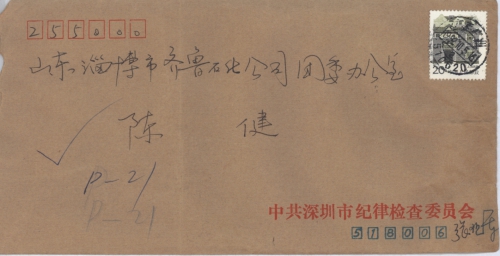 255000
山东淄博市齐鲁石化公司团委办公室
陈 健
P-21
P-21
中共深圳市纪律检查委员会
518006 张
20